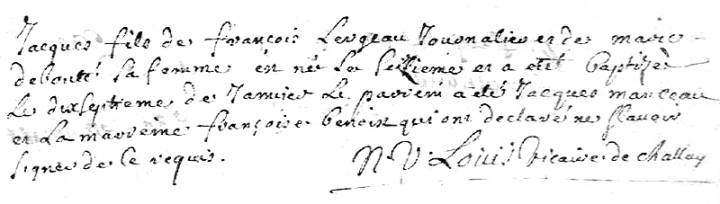 Jacques fils de françois Lergeau Journalier et de marie
debouté sa femme est né le seizieme et a etté baptizé
le dixseptieme de Janvier Le parrein a eté Jacques marceau
et La marreine françoise benoist qui ont declaré ne sçavoir
signer de ce requis.
N. V. Louis vicaire de challay